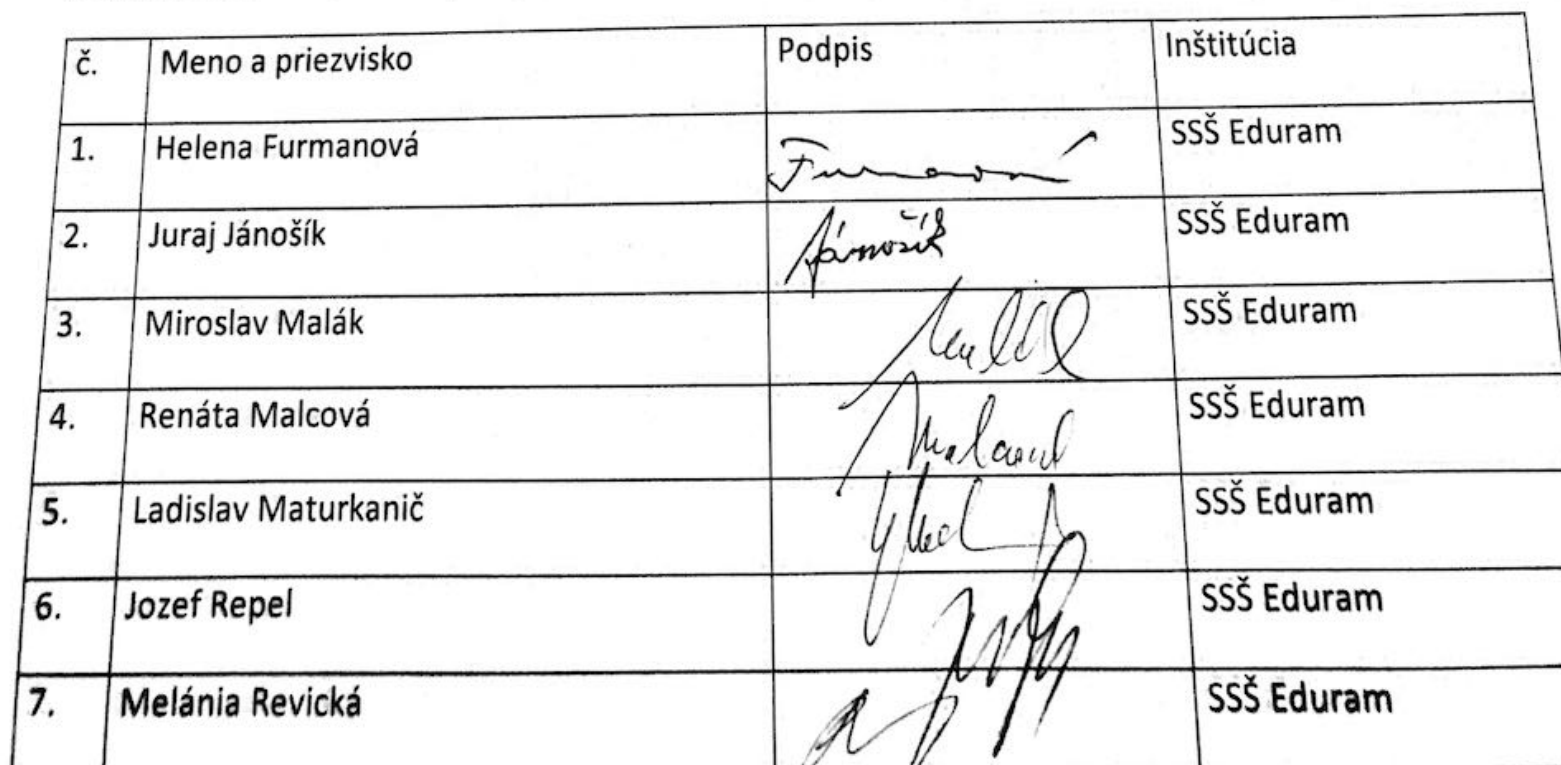 č. Meno a priezvisko Podpis Inštitúcia
1. Helena Furmanová Furmanová SSŠ Eduram
2. Juraj Jánošík Jánošík SSŠ Eduram
3. Miroslav Malák SSŠ Eduram
4. Renáta Malcová SSŠ Eduram
5. Ladislav Maturkanič SSŠ Eduram
6. Jozef Repel SSŠ Eduram
7. Melánia Revická SSŠ Eduram